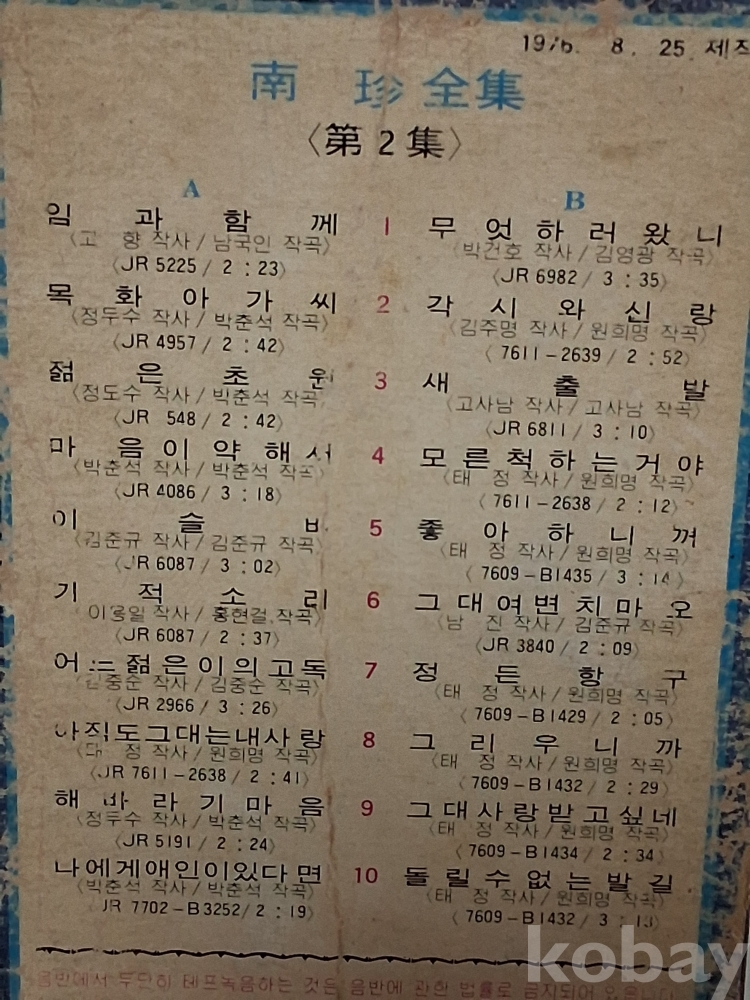 1976. 8. 25. 제작
南 珍 全集
〈第2集〉
A
임과함께
〈고 향 작사 / 남국인 작곡〉
〈JR 5225 / 2 : 23〉
목화아가씨
〈정두수 작사 / 박춘석 작곡〉
〈JR 4957 / 2 : 42〉
젊은초원
〈정도수 작사 / 박춘석 작곡〉
〈JR 548 / 2 : 42〉
마음이약해서
〈박춘석 작사 / 박춘석 작곡〉
〈JR 4086 / 3 : 18〉
이슬비
〈김준규 작사 / 김준규 작곡〉
〈JR 6087 / 3 : 02〉
기적소리
이용일 작사 / 홍현걸 작곡〉
〈JR 6087 / 2 : 37〉
어느젊은이의고독
〈김중순 작사 / 김중순 작곡〉
〈JR 2966 / 3 : 26〉
아직도그대는내사랑
〈태 정 작사 / 원희명 작곡〉
〈JR 7611-2638 / 2 : 41〉
해바라기마음
〈정두수 작사 / 박춘석 작곡〉
〈JR 5191 / 2 : 24〉
나에게애인이있다면
〈박춘석 작사 / 박춘석 작곡〉
JR 7702-B3252 / 2 : 19〉
1
2
3
4
5
6
7
8
9
10
B
무엇하러왔니
〈박건호 작사 / 김영광 작곡〉
〈JR 6982 / 3 : 35〉
각시와신랑
〈김주명 작사 / 원희명 작곡〉
〈7611-2639 / 2 : 52〉
새출발
〈고사남 작사 / 고사남 작곡〉
〈JR 6811 / 3 : 10〉
모른척하는거야
〈태 정 작사 / 원희명 작곡〉
〈7611-2638 / 2 : 12〉
좋아하니껴
〈태 정 작사 / 원희명 작곡〉
〈7609-B1435 / 3 : 14〉
그대여변치마오
〈남 진 작사 / 김준규 작곡〉
〈JR 3840 / 2 : 09〉
정든항구
〈태 정 작사 / 원희명 작곡〉
〈7609-B1429 / 2 : 05〉
그리우니까
〈태 정 작사 / 원희명 작곡〉
〈7609-B1432 / 2 : 29〉
그대사랑받고싶네
〈태 정 작사 / 원희명 작곡〉
〈7609-B1434 / 2 : 34〉
돌릴수없는발길
〈태 정 작사 / 원희명 작곡〉
〈7609-B1432 / 3 :
음반에서 무단히 테프녹음하는 것은 음반에 관한 법률로 금지되어 있습니다
kobay